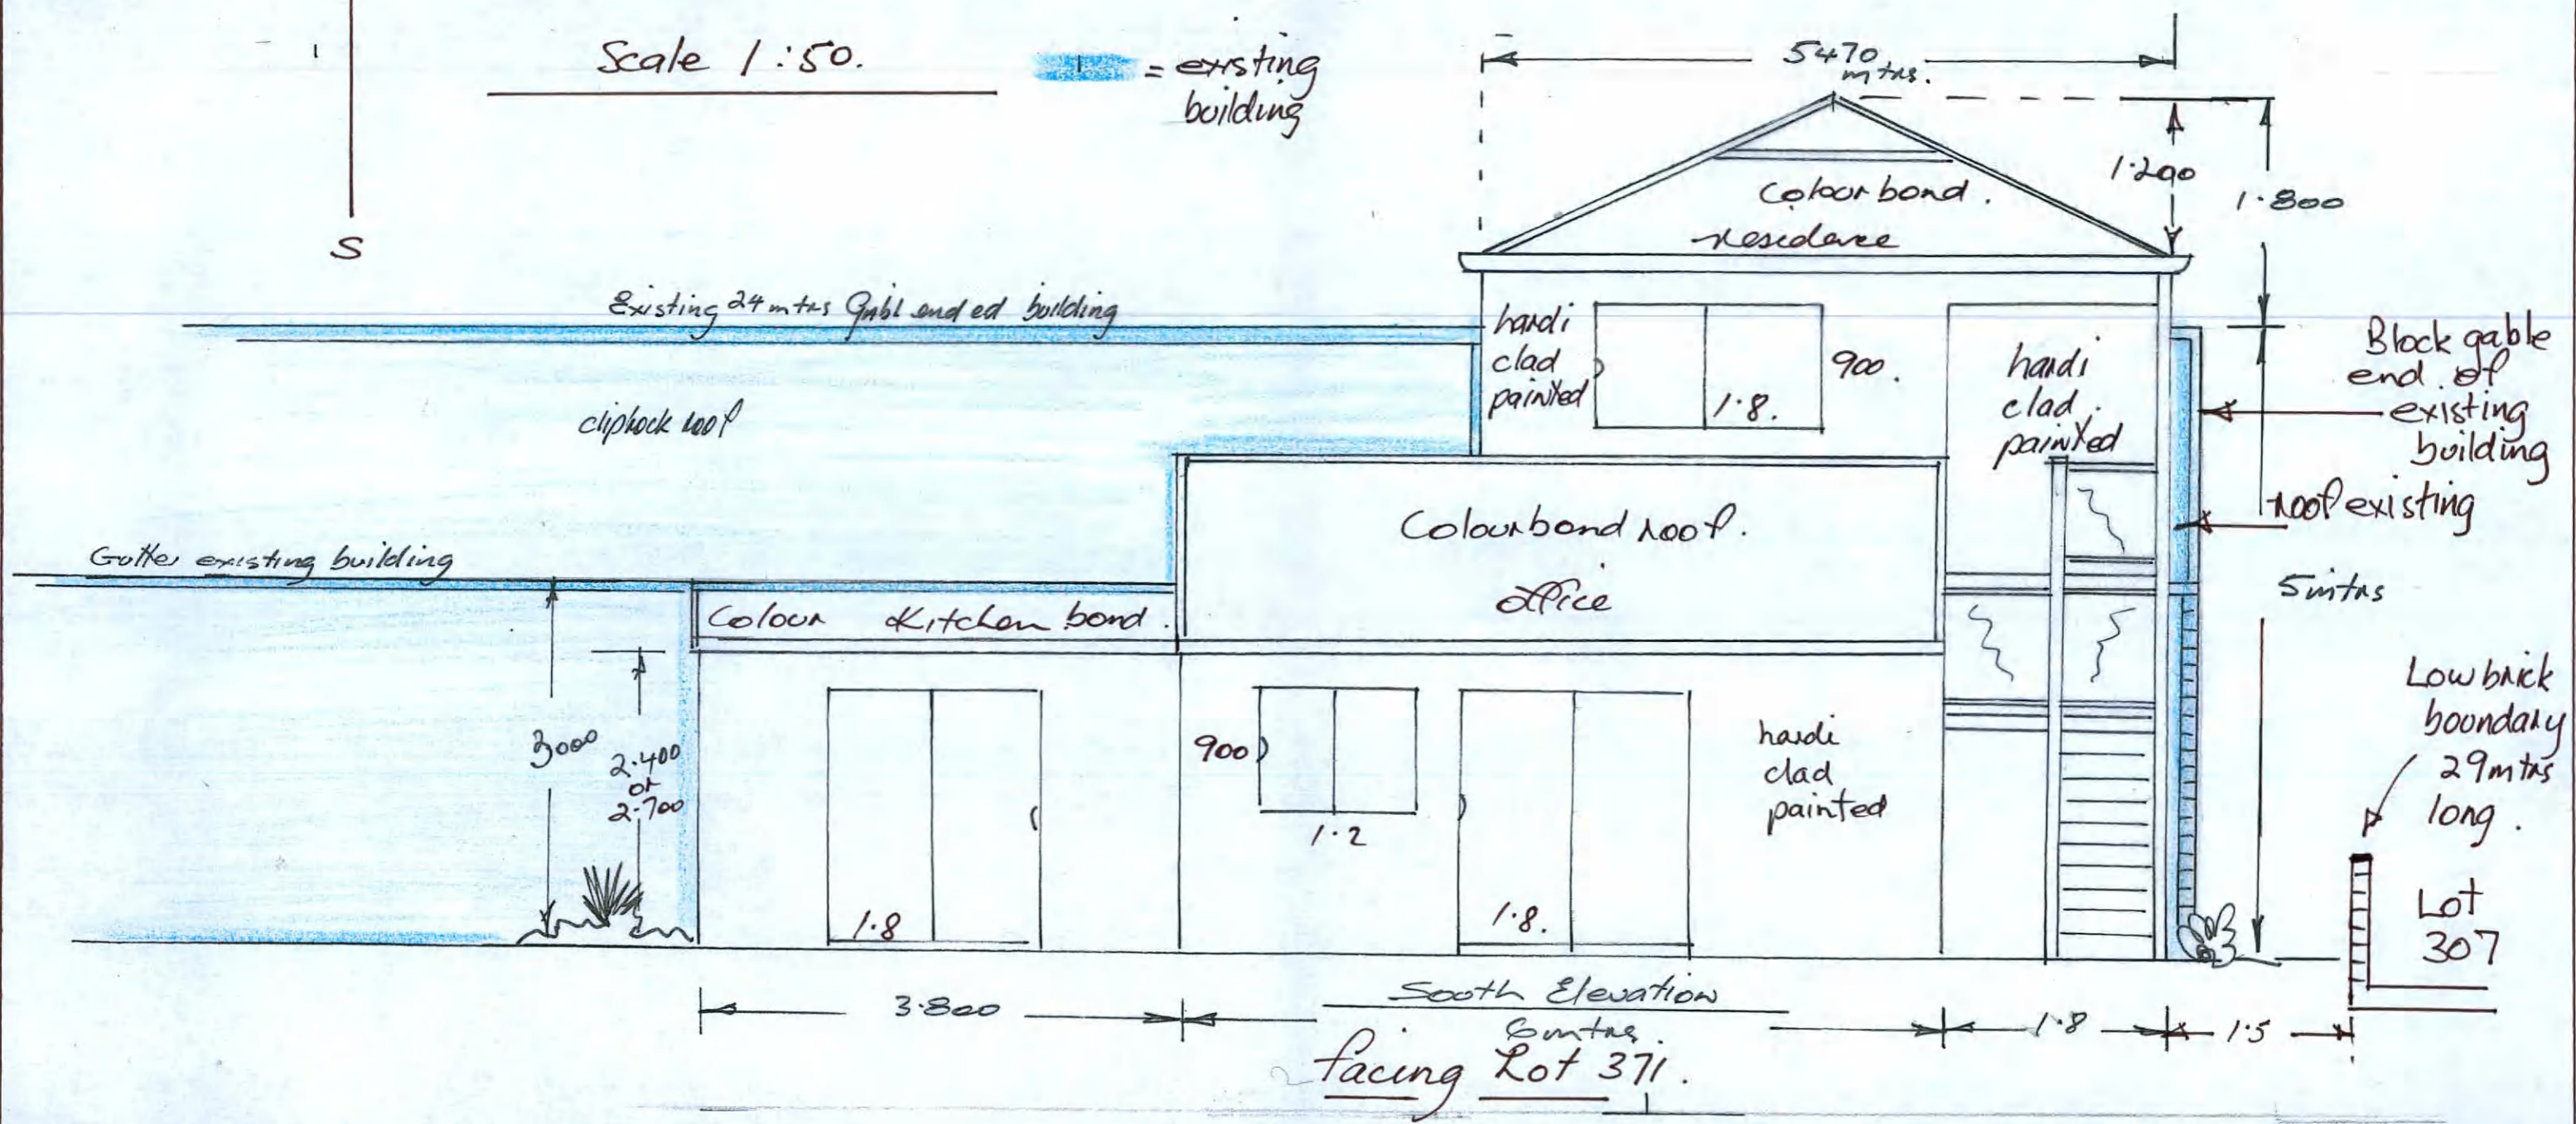 Scale 1:50.
= existing
building
S
5470
mtrs.
1.200
1.800
Colourbond.
residence
Existing 24 mtrs Gabl ended building
hardi
clad
painted
900.
1.8.
hardi
clad
painted
Block gable
end of
existing
building
roof existing
cliplock roof
Colourbond roof.
office
Gutter existing building
Colour Kitchen bond.
5mtrs
3000
2.400
or
2.700
1.8
900
1.2
1.8.
hardi
clad
painted
Low brick
boundary
29mtrs
long.
Lot
307
3.800
South Elevation
6mtrs.
1.8
1.5
facing Lot 371.